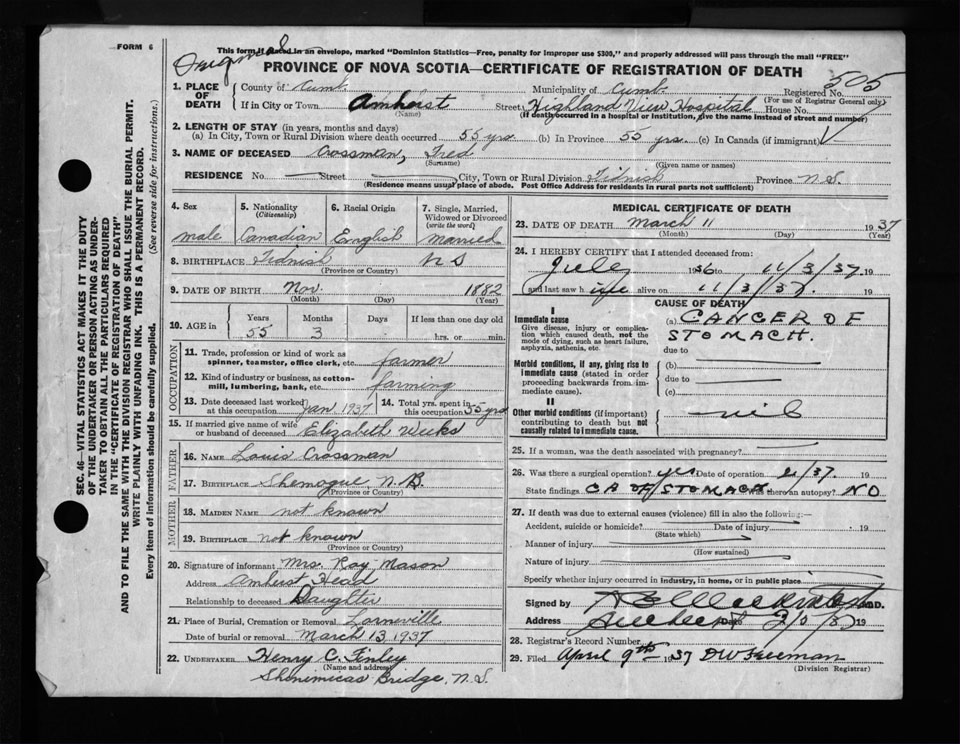 FORM 6
Original
This form if mailed in an envelope, marked "Dominion Statistics—Free, penalty for improper use $300," and properly addressed will pass through the mail "FREE"
PROVINCE OF NOVA SCOTIA—CERTIFICATE OF REGISTRATION OF DEATH
505
1. PLACE OF DEATH
County of Cumb. Municipality of Cumb. Registered No.
(For use of Registrar General only)
If in City or Town Amherst Street Highland View Hospital House No.
(Name) (If death occurred in a hospital or institution, give the name instead of street and number)
2. LENGTH OF STAY (in years, months and days)
(a) In City, Town or Rural Division where death occurred 55 yrs. (b) In Province 55 yrs. (c) In Canada (if immigrant)
3. NAME OF DECEASED Crossman, Fred
(Surname) (Given name or names)
RESIDENCE No. Street City, Town or Rural Division Tidnish Province N.S.
(Residence means usual place of abode. Post Office Address for residents in rural parts not sufficient)
SEC. 46—VITAL STATISTICS ACT MAKES IT THE DUTY
OF THE UNDERTAKER OR PERSON ACTING AS UNDER-
TAKER TO OBTAIN ALL THE PARTICULARS REQUIRED
IN THE "CERTIFICATE OF REGISTRATION OF DEATH"
AND TO FILE THE SAME WITH THE DIVISION REGISTRAR WHO SHALL ISSUE THE BURIAL PERMIT.
WRITE PLAINLY WITH UNFADING INK. THIS IS A PERMANENT RECORD.
Every item of information should be carefully supplied. (See reverse side for instructions.)
4. Sex
male
5. Nationality
(Citizenship)
Canadian
6. Racial Origin
English
7. Single, Married,
Widowed or Divorced
(write the word)
married
8. BIRTHPLACE Tidnish N S
(Province or Country)
9. DATE OF BIRTH Nov. 1882
(Month) (Day) (Year)
10. AGE in
Years Months Days If less than one day old
55 3 hrs. or min.
OCCUPATION
11. Trade, profession or kind of work as
spinner, teamster, office clerk, etc. farmer
12. Kind of industry or business, as cotton-
mill, lumbering, bank, etc. farming
13. Date deceased last worked
at this occupation Jan. 1937
14. Total yrs. spent in
this occupation 55 yrs
15. If married give name of wife
or husband of deceased Elizabeth Weeks
FATHER
16. NAME Louis Crossman
17. BIRTHPLACE Shemogue, N.B.
(Province or Country)
MOTHER
18. MAIDEN NAME not known
19. BIRTHPLACE not known
(Province or Country)
20. Signature of informant Mrs. Roy Mason
Address Amherst Head
Relationship to deceased Daughter
21. Place of Burial, Cremation or Removal Lorneville
Date of burial or removal March 13, 1937
22. UNDERTAKER Henry C. Finley
(Name and address)
Shinimicas Bridge, N.S.
MEDICAL CERTIFICATE OF DEATH
23. DATE OF DEATH March 11 1937
(Month) (Day) (Year)
24. I HEREBY CERTIFY that I attended deceased from:
1936 to 11/3/37. 19
and last saw h alive on 11/3/37. 19
CAUSE OF DEATH
I
Immediate cause
Give disease, injury or complica-
tion which caused death, not the
mode of dying, such as heart failure,
asphyxia, asthenia, etc.
(a) CANCER OF
STOMACH.
due to
Morbid conditions, if any, giving rise to
immediate cause (stated in order
proceeding backwards from im-
mediate cause).
(b)
due to
(c)
II
Other morbid conditions (if important)
contributing to death but not
causally related to immediate cause.
nil
25. If a woman, was the death associated with pregnancy?
26. Was there a surgical operation? yes Date of operation 2/37. 19
State findings CA OF STOMACH Was there an autopsy? NO
27. If death was due to external causes (violence) fill in also the following:—
Accident, suicide or homicide? Date of injury 19
(State which)
Manner of injury
(How sustained)
Nature of injury
Specify whether injury occurred in industry, in home, or in public place
Signed by M.D.
Address Amherst Date 19
28. Registrar's Record Number
29. Filed April 9th 1937 D W Freeman
(Division Registrar)